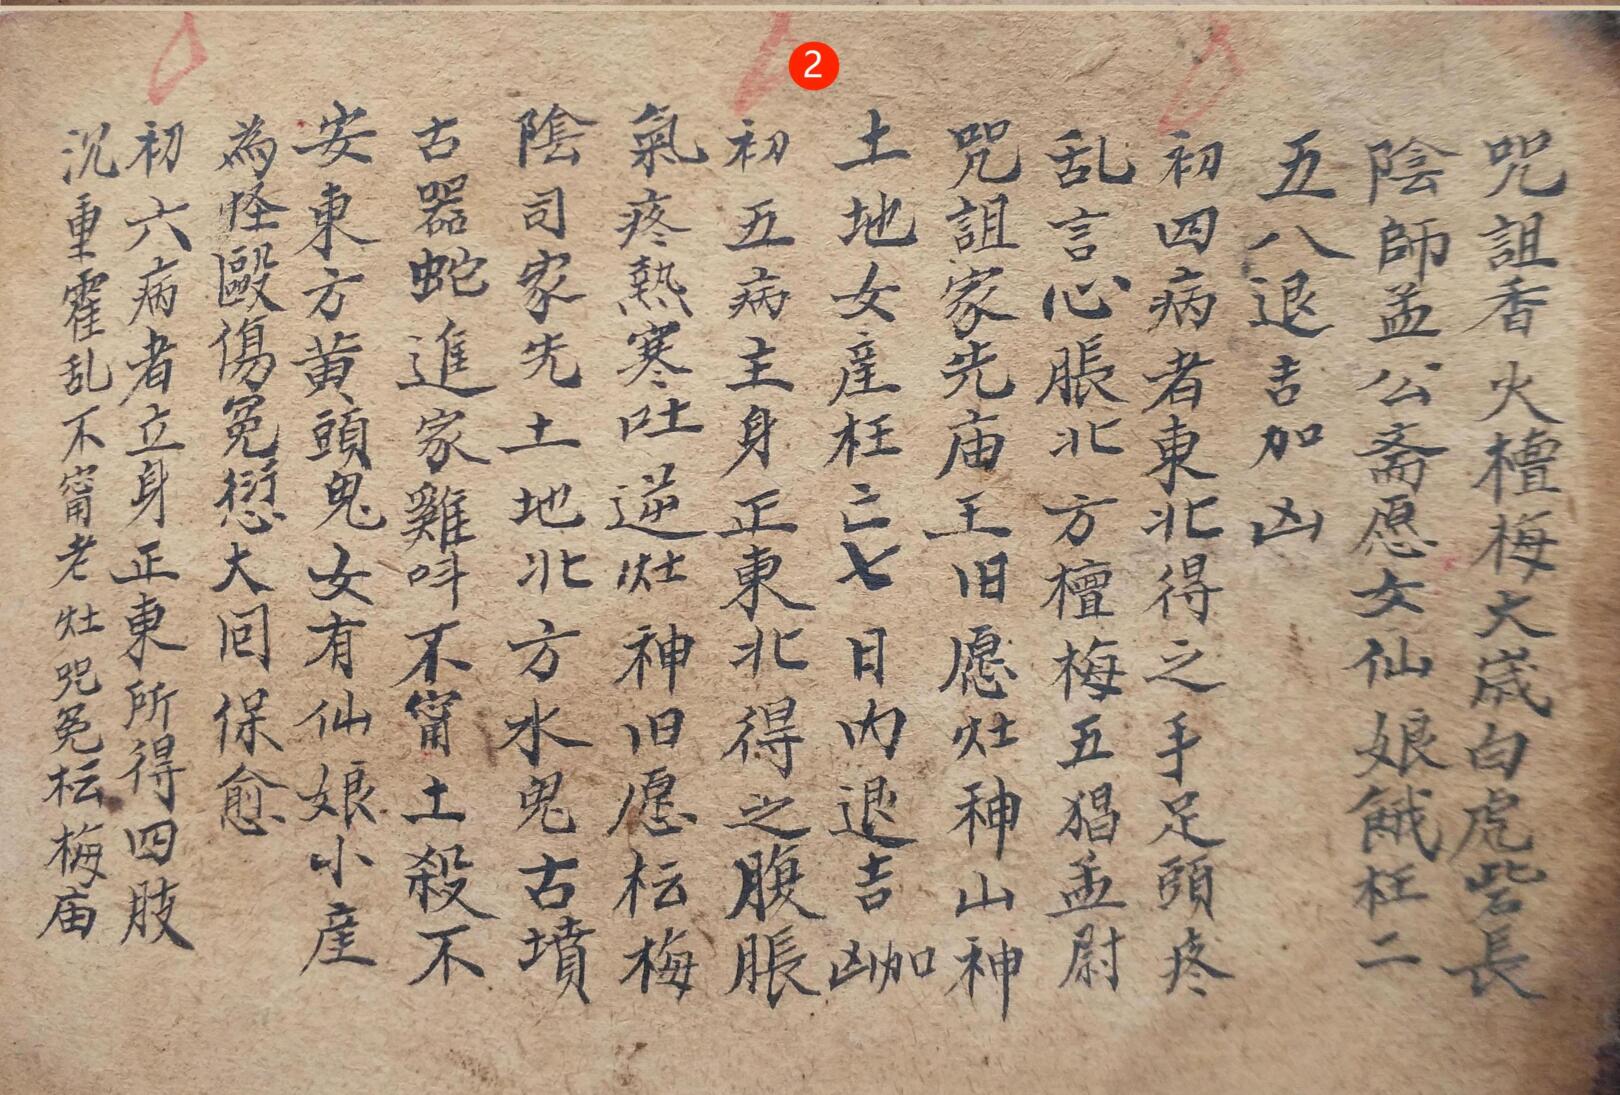 2
咒詛香火檀梅大歲白虎砦長
陰師孟公斋愿女仙娘餓枉二
五八退吉加凶
初四病者東北得之手足頭疼
乱言心脹北方檀梅五猖孟尉
咒詛家先庙王旧愿灶神山神
土地女産枉亡七日内退吉凶加
初五病主身正東北得之腹脹
氣疼熱寒吐逆灶神旧愿枟梅
陰司家先土地北方水鬼古墳
古器蛇進家雞呌不甯土殺不
安東方黄頭鬼女有仙娘小産
為怪毆傷冤愆大囘保愈
初六病者立身正東所得四肢
沉重霍乱不甯老灶咒冤枟梅庙